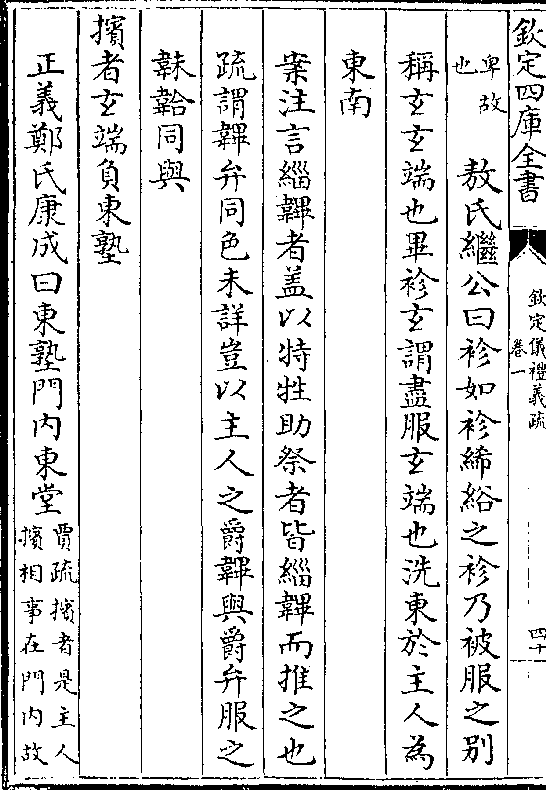 欽定四庫全書
欽定儀禮義疏
卷一
四十
卑故
也
敖氏繼公曰袗如袗絺綌之袗乃被服之別
稱玄玄端也畢袗玄謂盡服玄端也洗東於主人為
東南
案注言緇韠者盖以特牲助祭者皆緇韠而推之也
疏謂韠弁同色未詳豈以主人之爵韠與爵弁服之
韎韐同與
擯者玄端負東塾
正義鄭氏康成曰東塾門内東堂
賈疏擯者是主人
擯相事在門内故